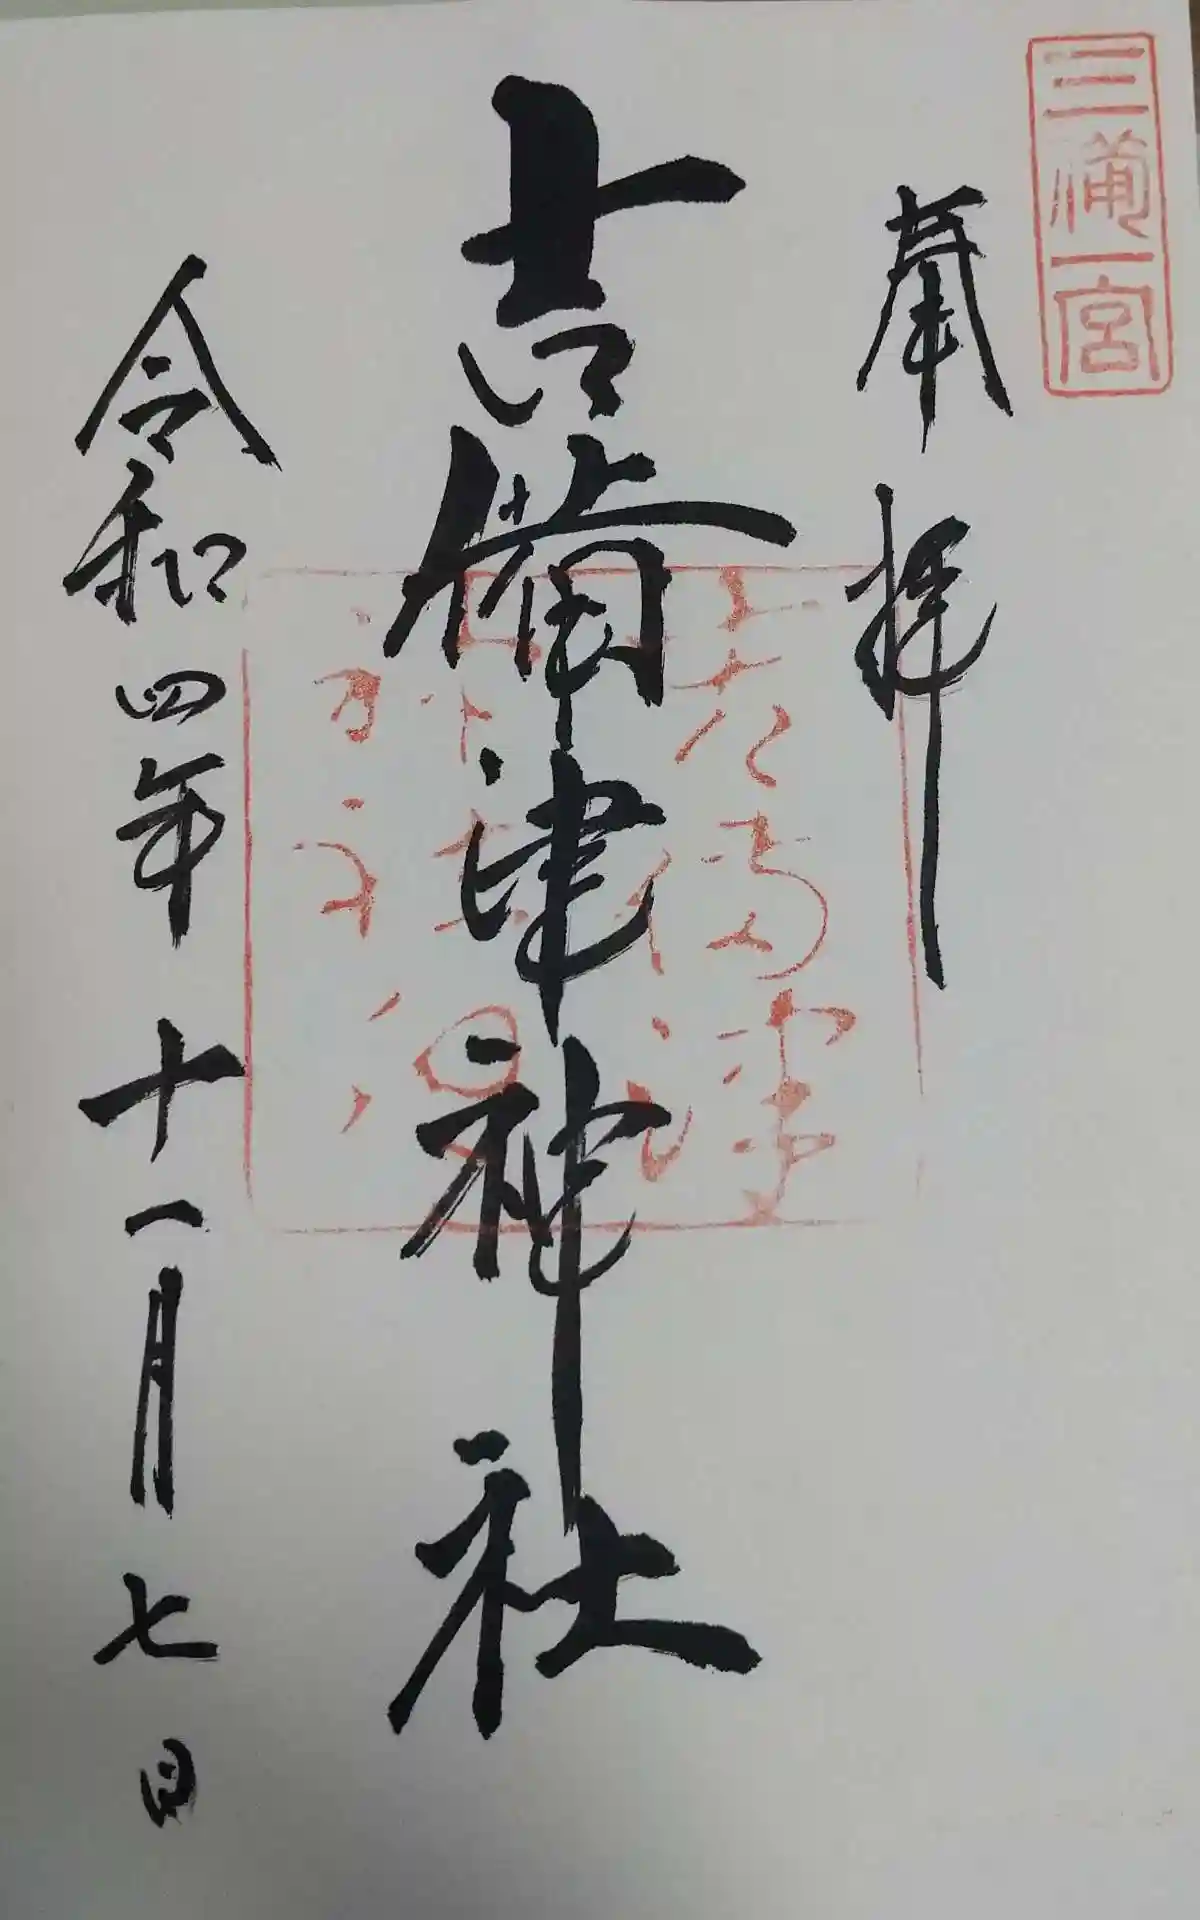 三備一宮
奉拝
吉備津神社
令和四年十一月七日